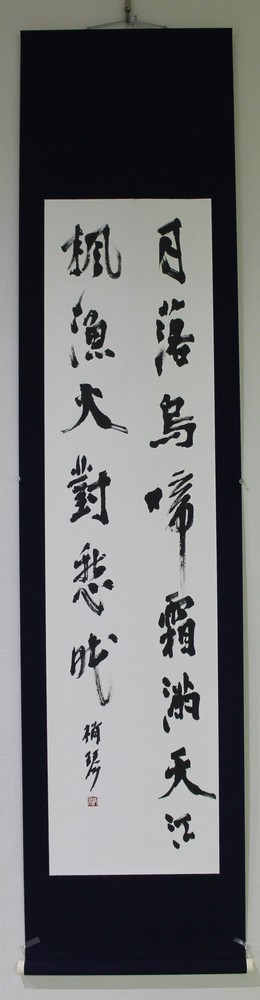 月落烏啼霜満天江
楓漁火對愁眠